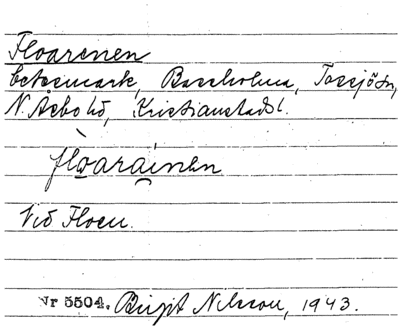 Floarenen
betesmark, Bassholma, Tossjö sn,
N. Åsbo hd, Kristianstads l.
floarainen
Vid Floen.
Nr 5504. Birgit Nilsson, 1943.